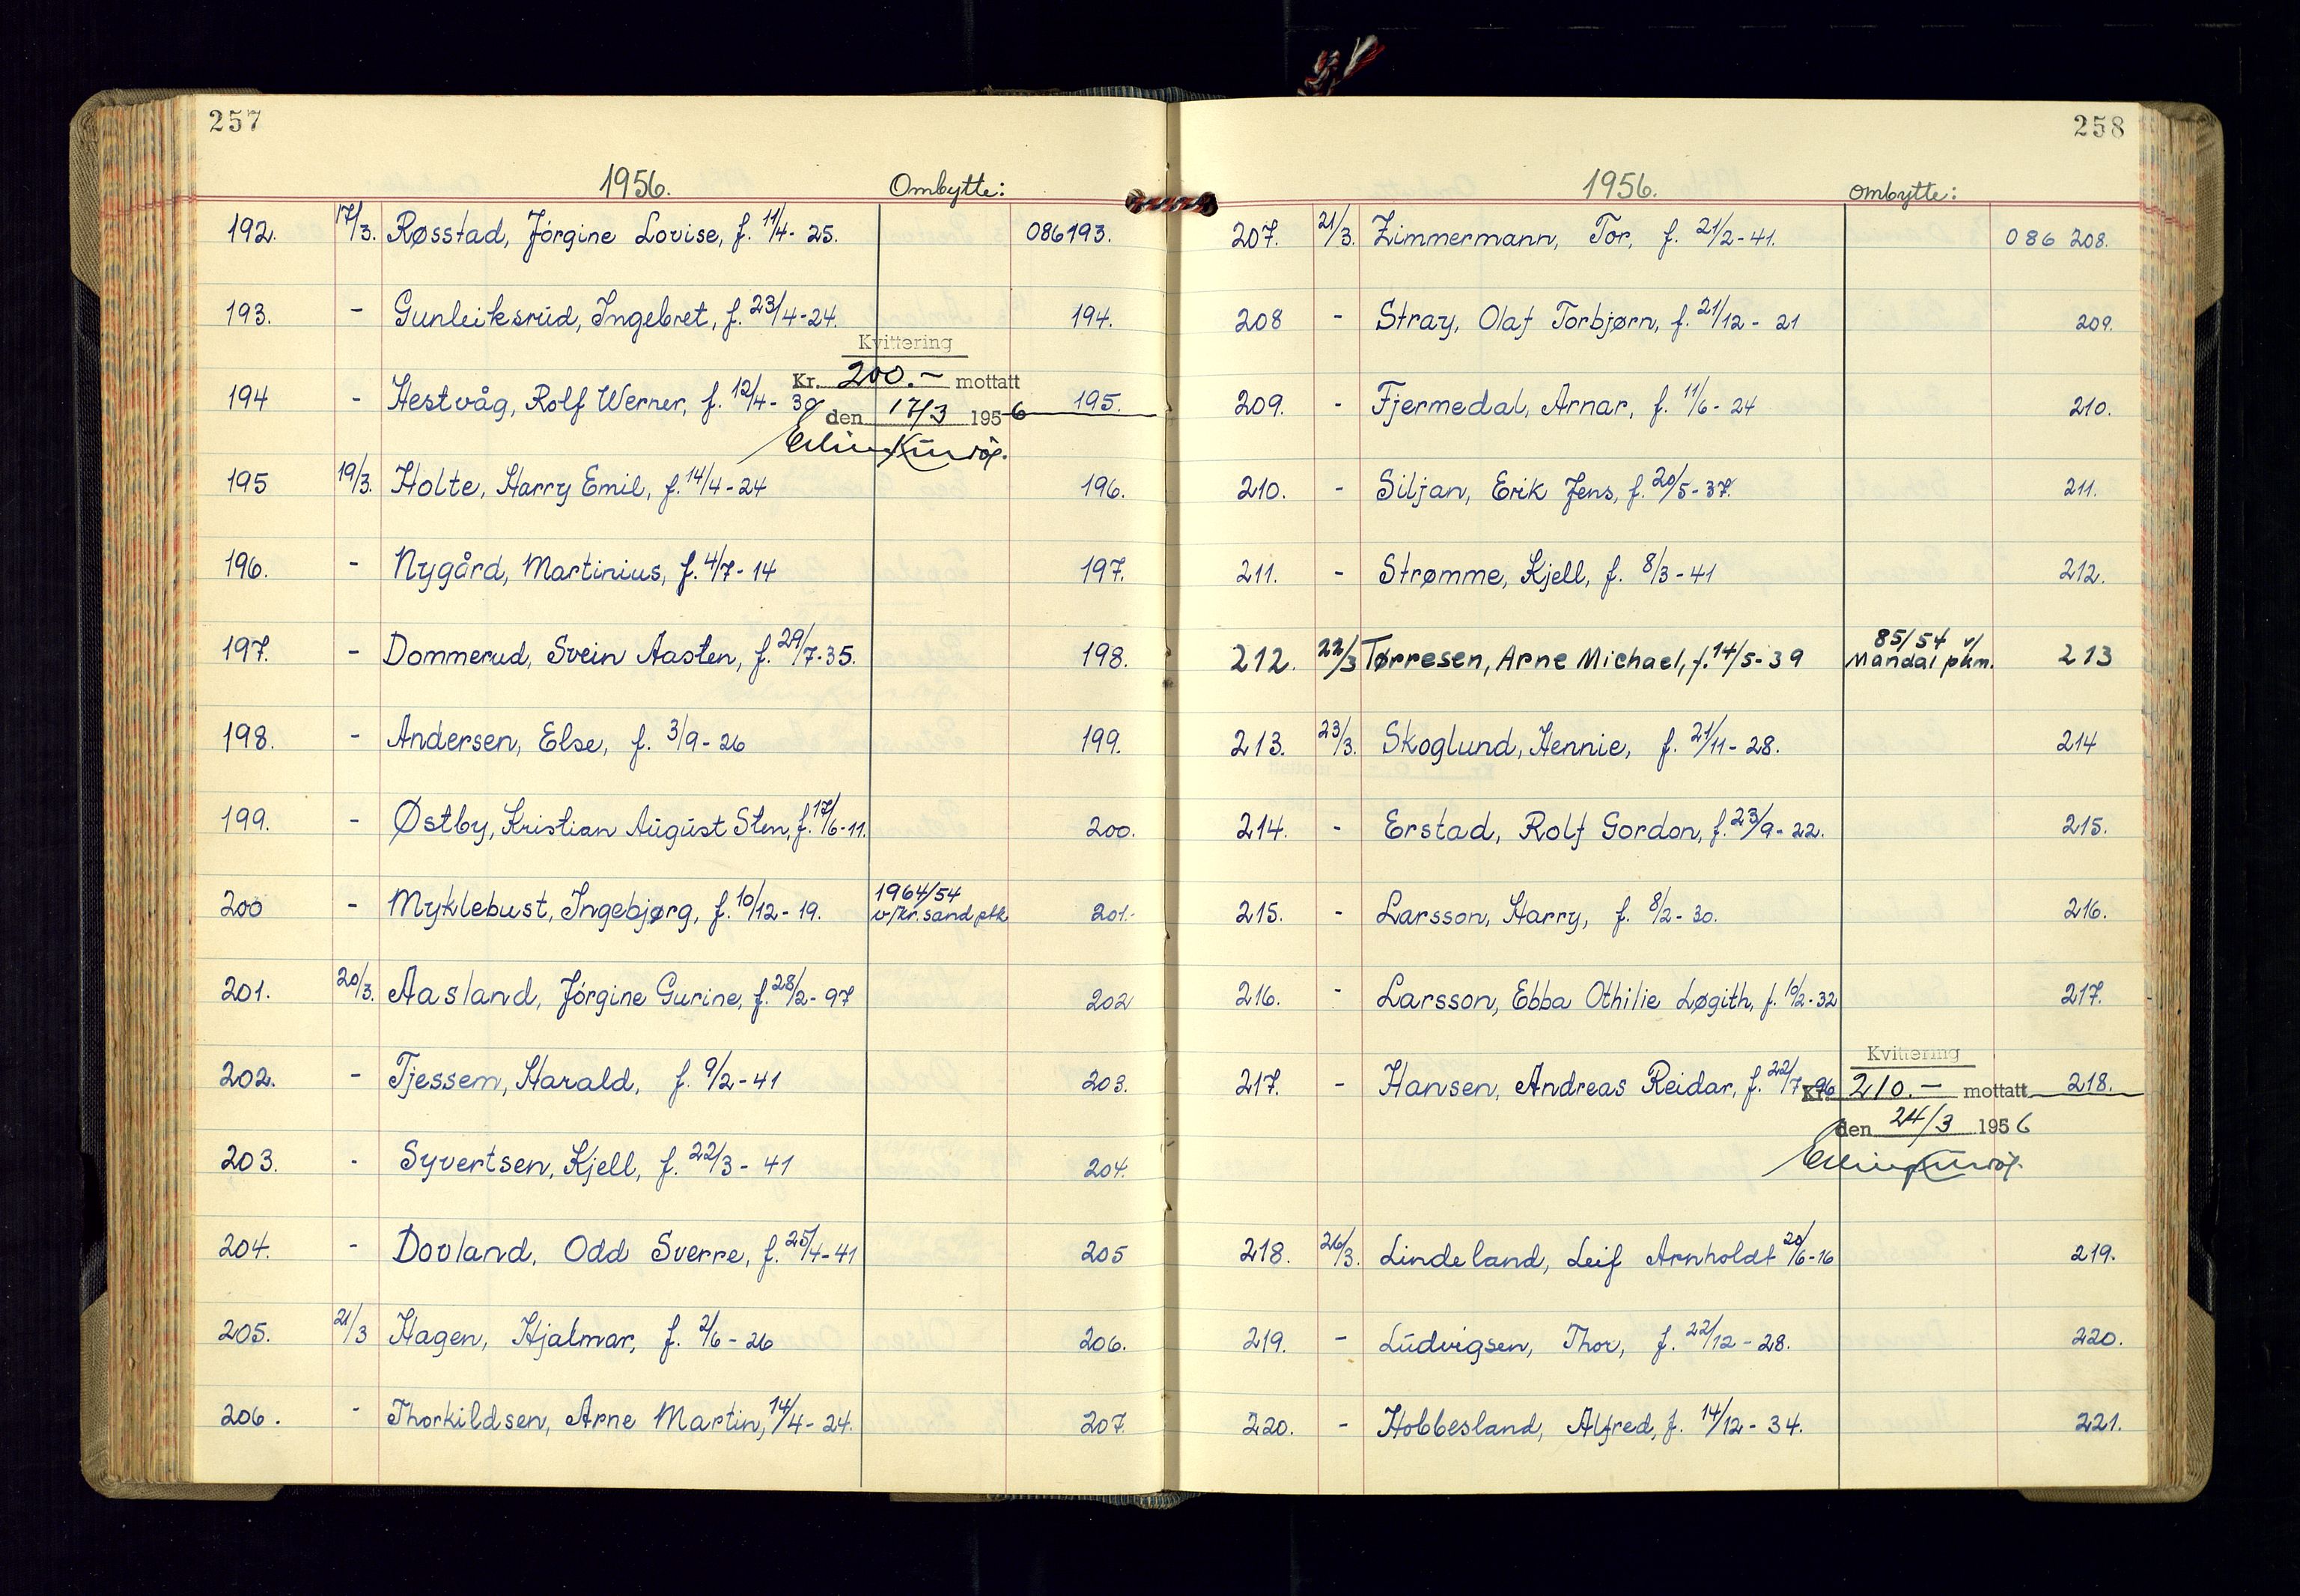 257
1956. Ombytte:
192. 17/3. Røsstad, Jórgine Lovise, f. 11/4-25. 086193.
193. - Gunleiksrud, Ingebret, f. 23/4-24. 194.
Kvittering
Kr. 200.- mottatt
194 - Hestvåg, Rolf Werner, f. 12/4-30 195.
den 17/3 1956
195 19/3. Holte, Harry Emil, f. 14/4-24 196.
196. - Nygård, Martinius, f. 4/7-14 197.
197. - Dommerud, Svein Aasten, f. 29/7-35. 198.
198. - Andersen, Else, f. 3/9-26 199.
199. - Østby, Kristian August Sten, f. 17/6-11. 200.
1964/54
200 - Myklebust, Ingebjørg, f. 10/12-19. v/Kr.sand ptk 201.
201. 20/3. Aasland, Jórgine Gurine, f. 28/2-97 202
202. - Tjessem, Harald, f. 9/2-41 203.
203. - Syvertsen, Kjell, f. 22/3-41 204.
204. - Dovland, Odd Sverre, f. 25/4-41 205
205. 21/3 Hagen, Hjalmar, f. 2/6-26 206.
206. - Thorkildsen, Arne Martin, 14/4-24. 207.
258
1956. Ombytte:
207. 21/3. Zimmermann, Tor, f. 21/2-41. 086 208.
208 - Stray, Olaf Torbjørn, f. 21/12-21 209.
209. - Fjermedal, Arnar, f. 11/6-24 210.
210. - Siljan, Erik Jens, f. 20/5-37. 211.
211. - Strømme, Kjell, f. 8/3-41 212.
85/54 v/
212. 22/3 Tørresen, Arne Michael, f. 14/5-39 Mandal pkm. 213
213. 23/3. Skoglund, Hennie, f. 21/11-28. 214
214. - Erstad, Rolf Gordon, f. 23/9-22. 215.
215. - Larsson, Harry, f. 8/2-30. 216.
216. - Larsson, Ebba Othilie Løgith, f. 10/2-32 217.
Kvittering
217. - Hansen, Andreas Reidar, f. 22/7-96 Kr. 210.- mottatt 218.
den 24/3 1956
218. 26/3. Lindeland, Leif Arnholdt 20/6-16 219.
219. - Ludvigsen, Thor, f. 22/12-28. 220.
220. - Hobbesland, Alfred, f. 14/12-34. 221.